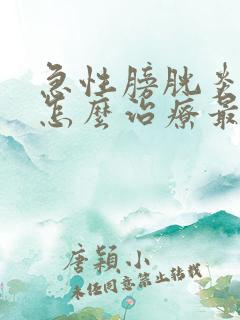 急性膀胱炎
怎麼治療最
唐穎小
未经同意禁止转载